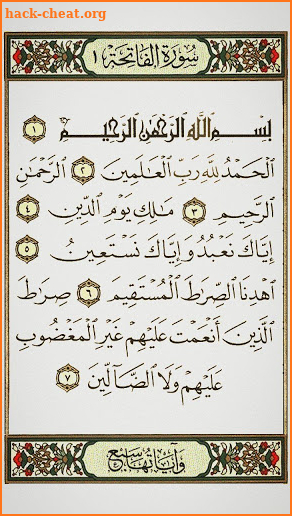 hack-cheat.org
سُورَةُ الفَاتِحَةِ ١
بِسْمِ اللَّهِ الرَّحْمَٰنِ الرَّحِيمِ ١
الْحَمْدُ لِلَّهِ رَبِّ الْعَالَمِينَ ٢ الرَّحْمَٰنِ
الرَّحِيمِ ٣ مَالِكِ يَوْمِ الدِّينِ ٤
إِيَّاكَ نَعْبُدُ وَإِيَّاكَ نَسْتَعِينُ ٥
اهْدِنَا الصِّرَاطَ الْمُسْتَقِيمَ ٦ صِرَاطَ
الَّذِينَ أَنْعَمْتَ عَلَيْهِمْ غَيْرِ الْمَغْضُوبِ
عَلَيْهِمْ وَلَا الضَّالِّينَ ٧
وَآيَاتُهَا سَبْعٌ